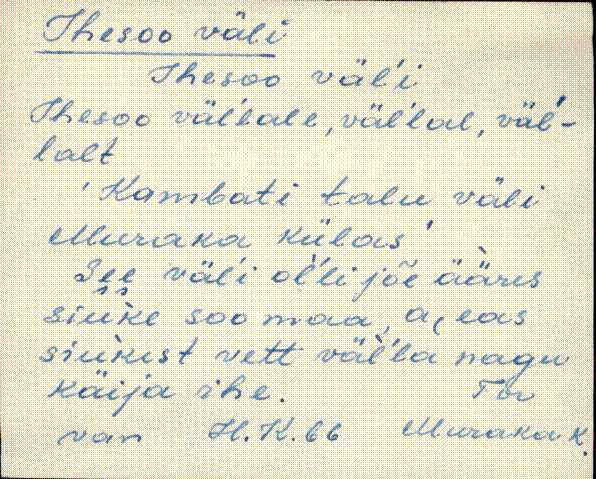 Ihesoo väli
Ihesoo väl'i
Ihesoo väl'l'ale, väl'l'al, väl'-
l'alt
'Kambati talu väli
Muraka külas'
See väl'i ol'l'i jõe ääres
siuke soo maa, a, eas
siukest vett väl'l'a nagu
käija ihe. Tor
van H.K.66 Muraka k.